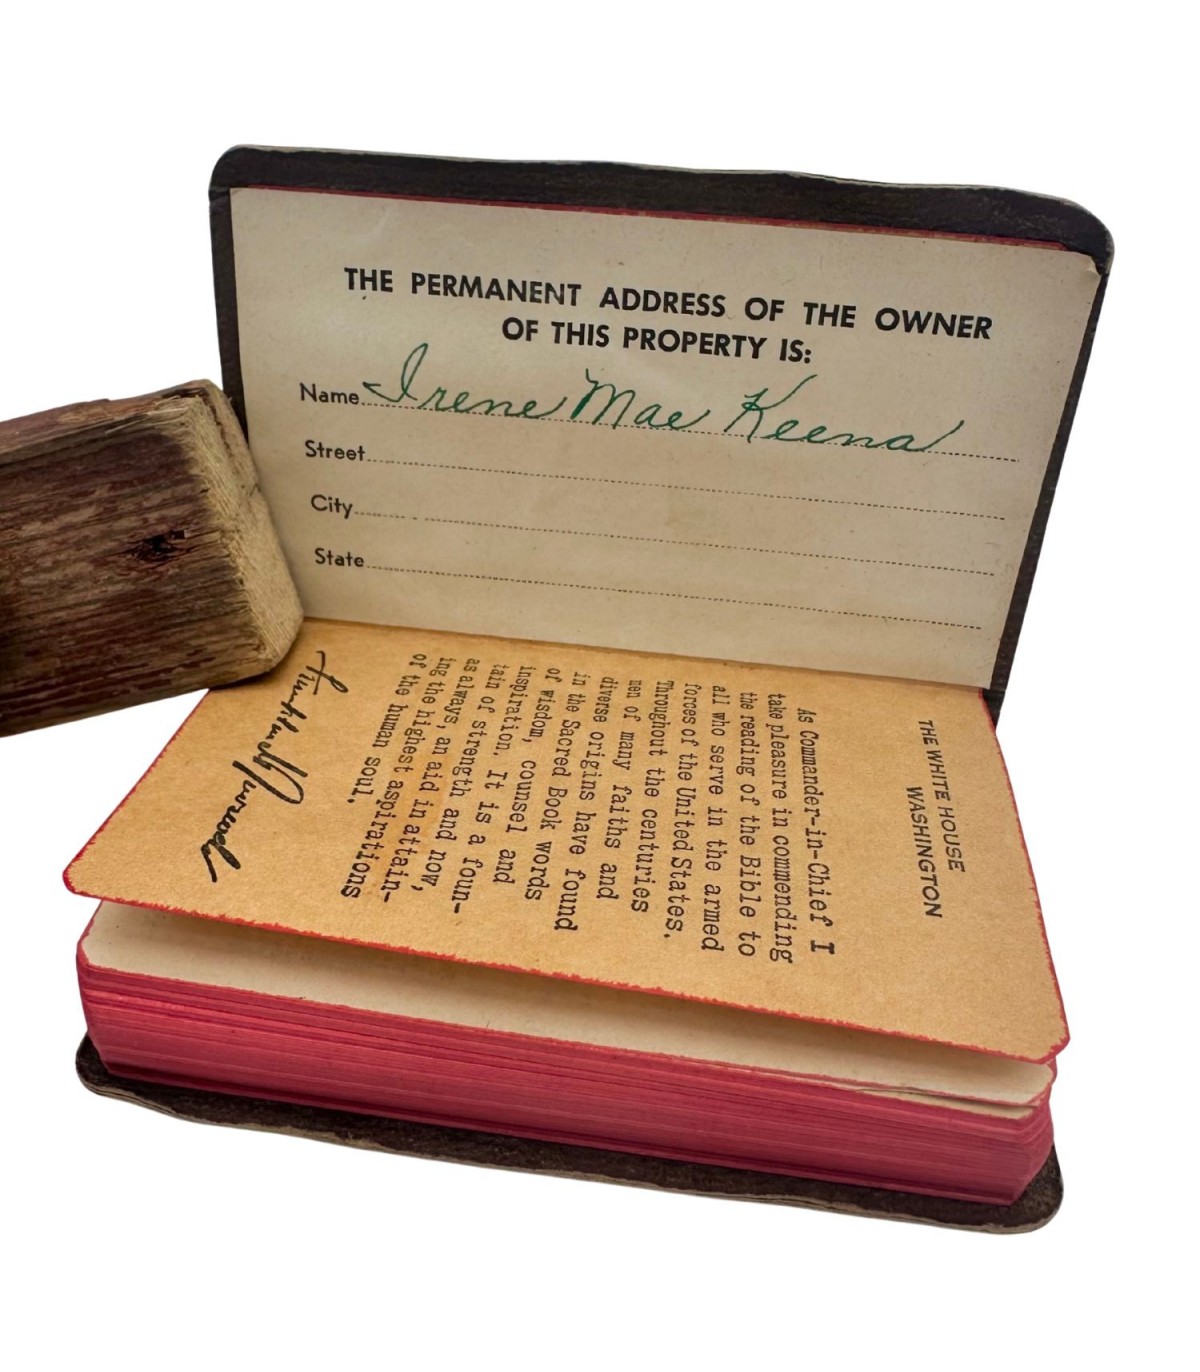 THE PERMANENT ADDRESS OF THE OWNER
OF THIS PROPERTY IS:
Name Irene Mae Keena
Street
City
State
THE WHITE HOUSE
WASHINGTON
As Commander-in-Chief I
take pleasure in commending
the reading of the Bible to
all who serve in the armed
forces of the United States.
Throughout the centuries
men of many faiths and
diverse origins have found
in the Sacred Book words
of wisdom, counsel and
inspiration. It is a foun-
tain of strength and now,
as always, an aid in attain-
ing the highest aspirations
of the human soul.
Franklin D Roosevelt